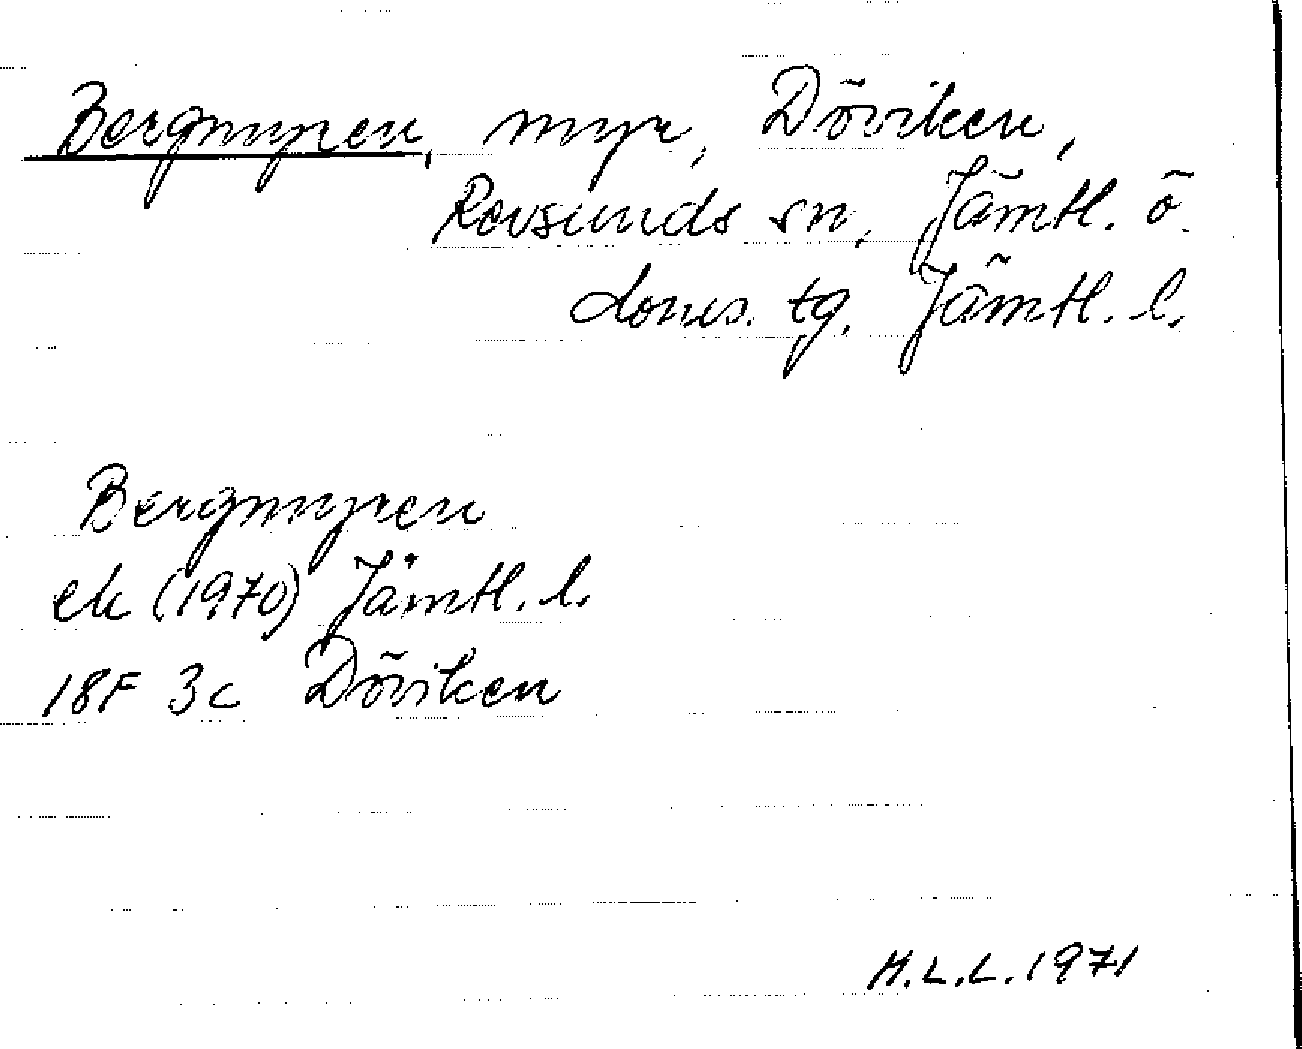 Bergmyren, myr, Döviken,
Revsunds sn, Jämtl. ö.
doms. tg. Jämtl. l.
Bergmyren
ek (1970) Jämtl. l.
18F 3c Döviken
H.L.L. 1971